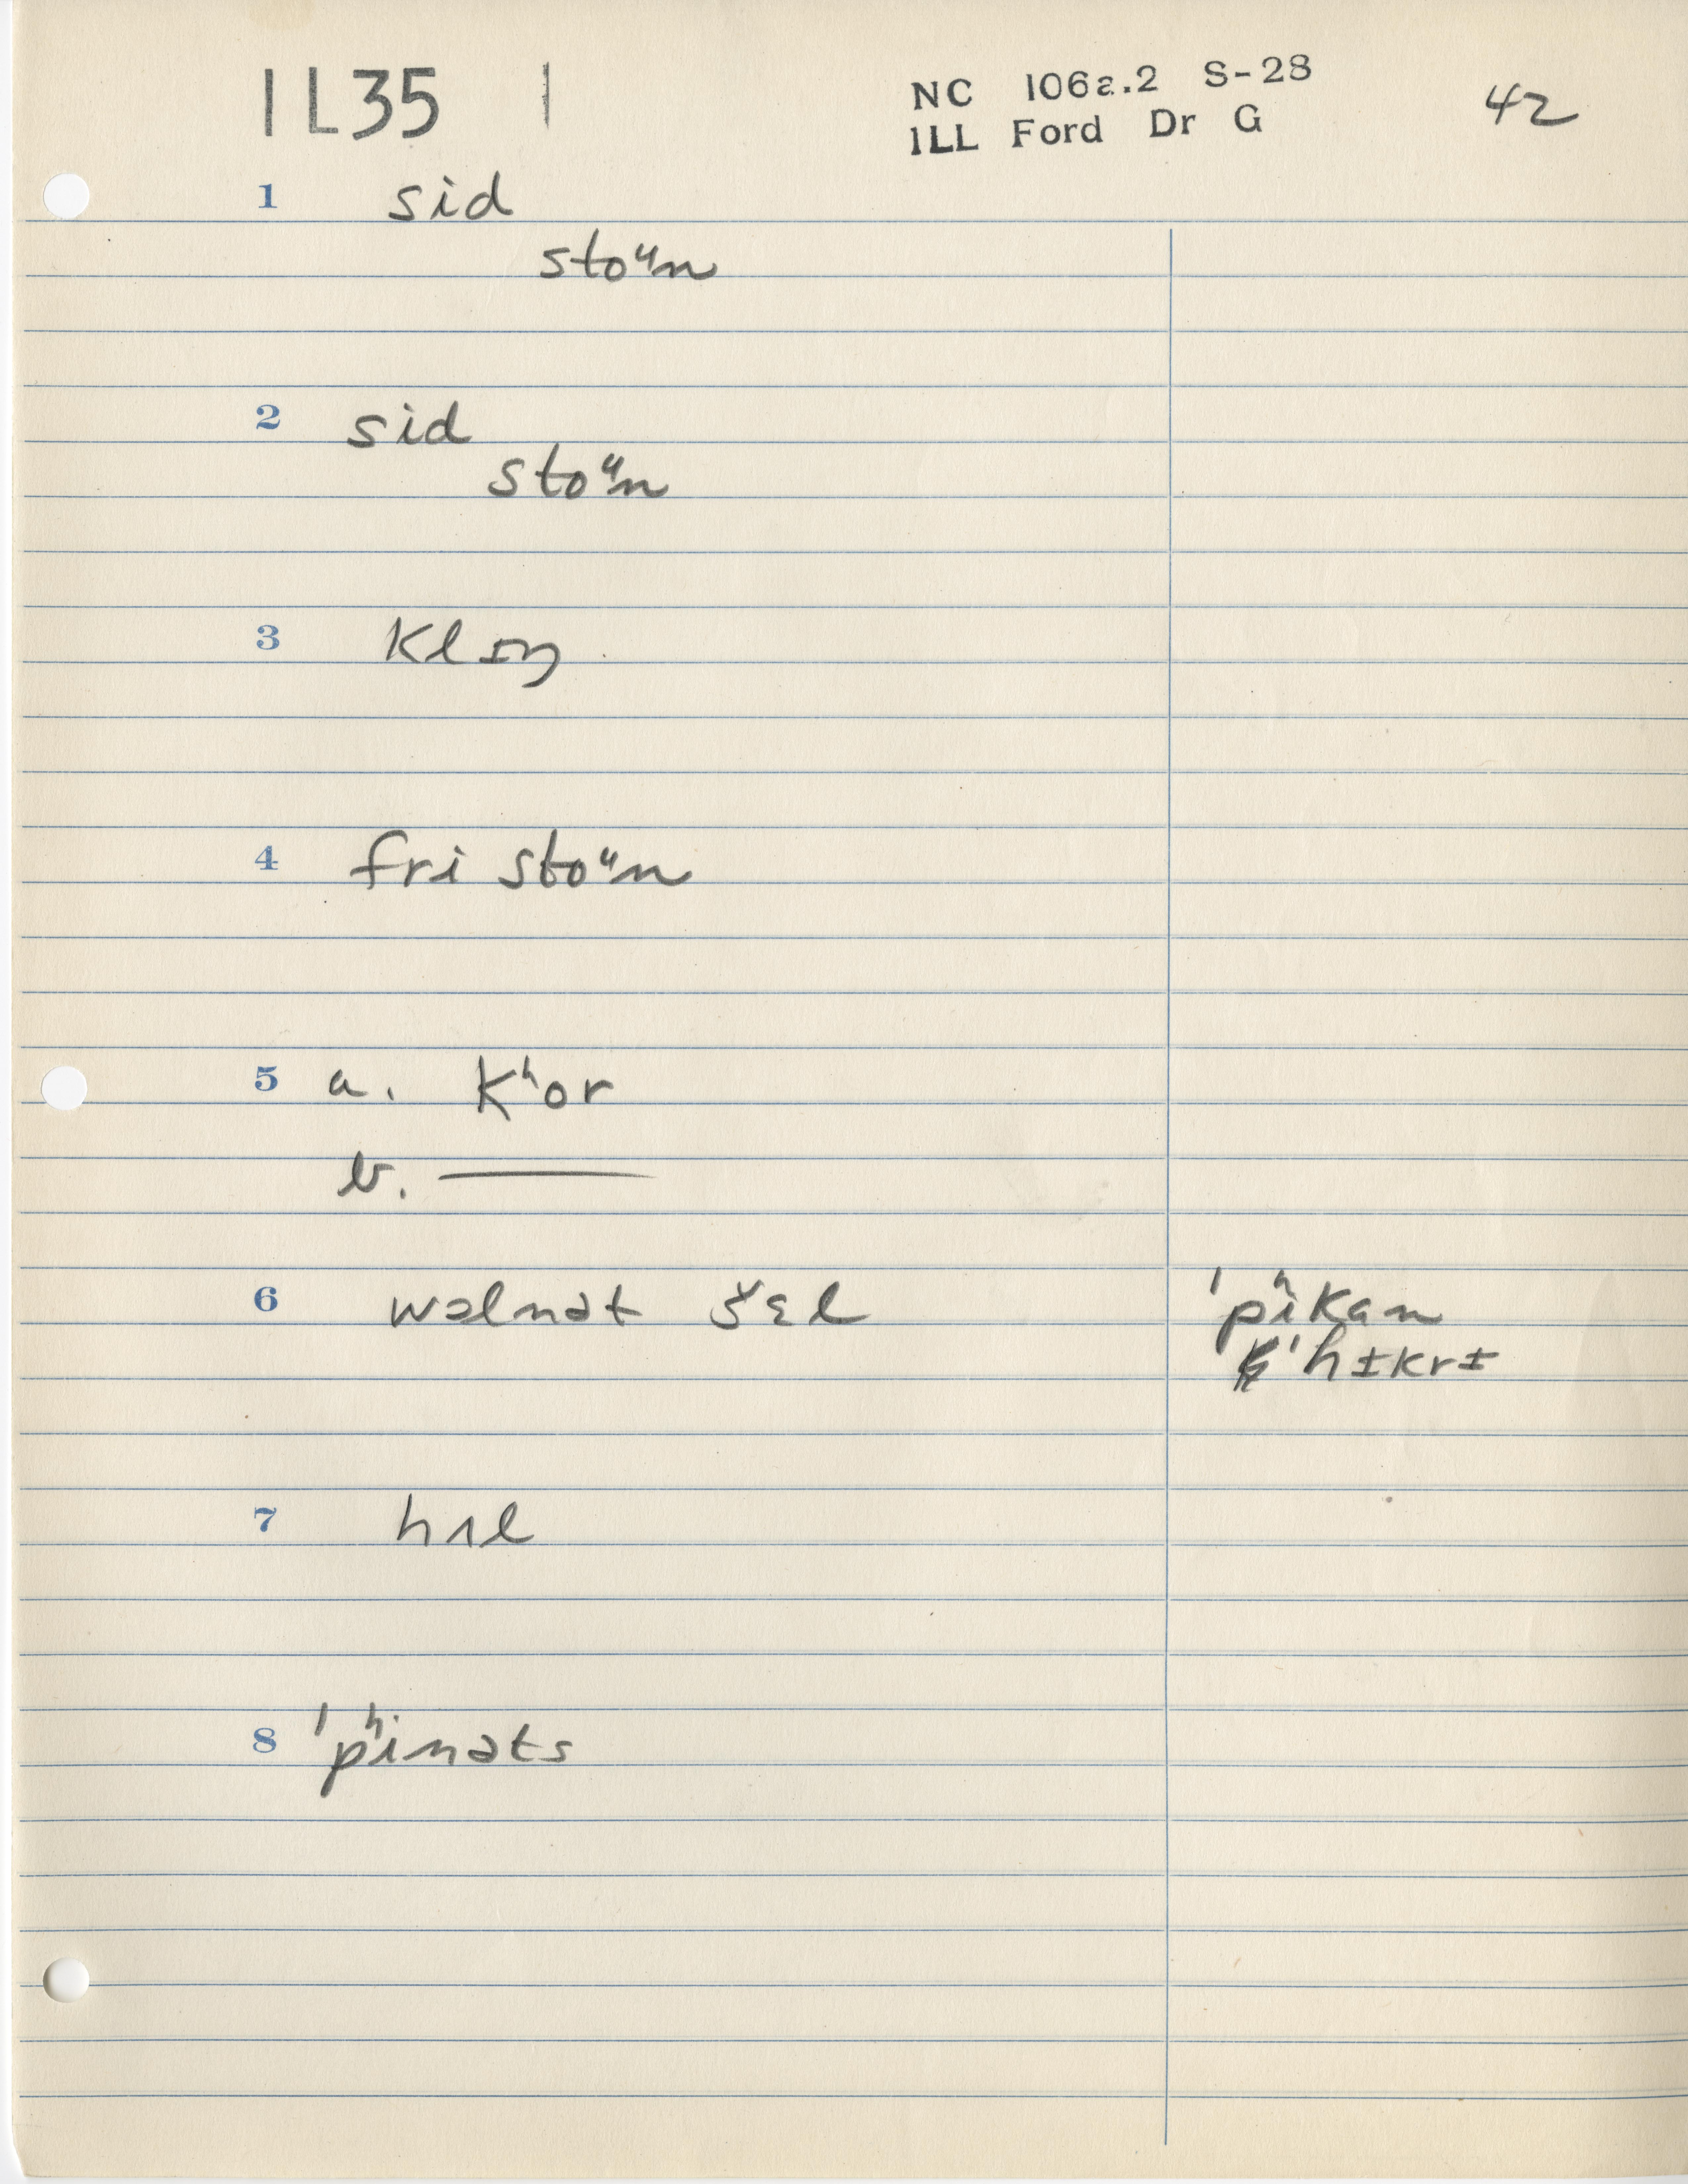 1L35 1
NC 106a.2 S-28
ILL Ford Dr G
42
1 sid
stoᵘn
2 sid
stoᵘn
3 klɪŋ
4 fri stoᵘn
5 a. kʰor
b. ———
6 wɔlnət šɛl
ˈpʰikan
ˈhɨkrɨ
7 hʌl
8 ˈpʰinəts